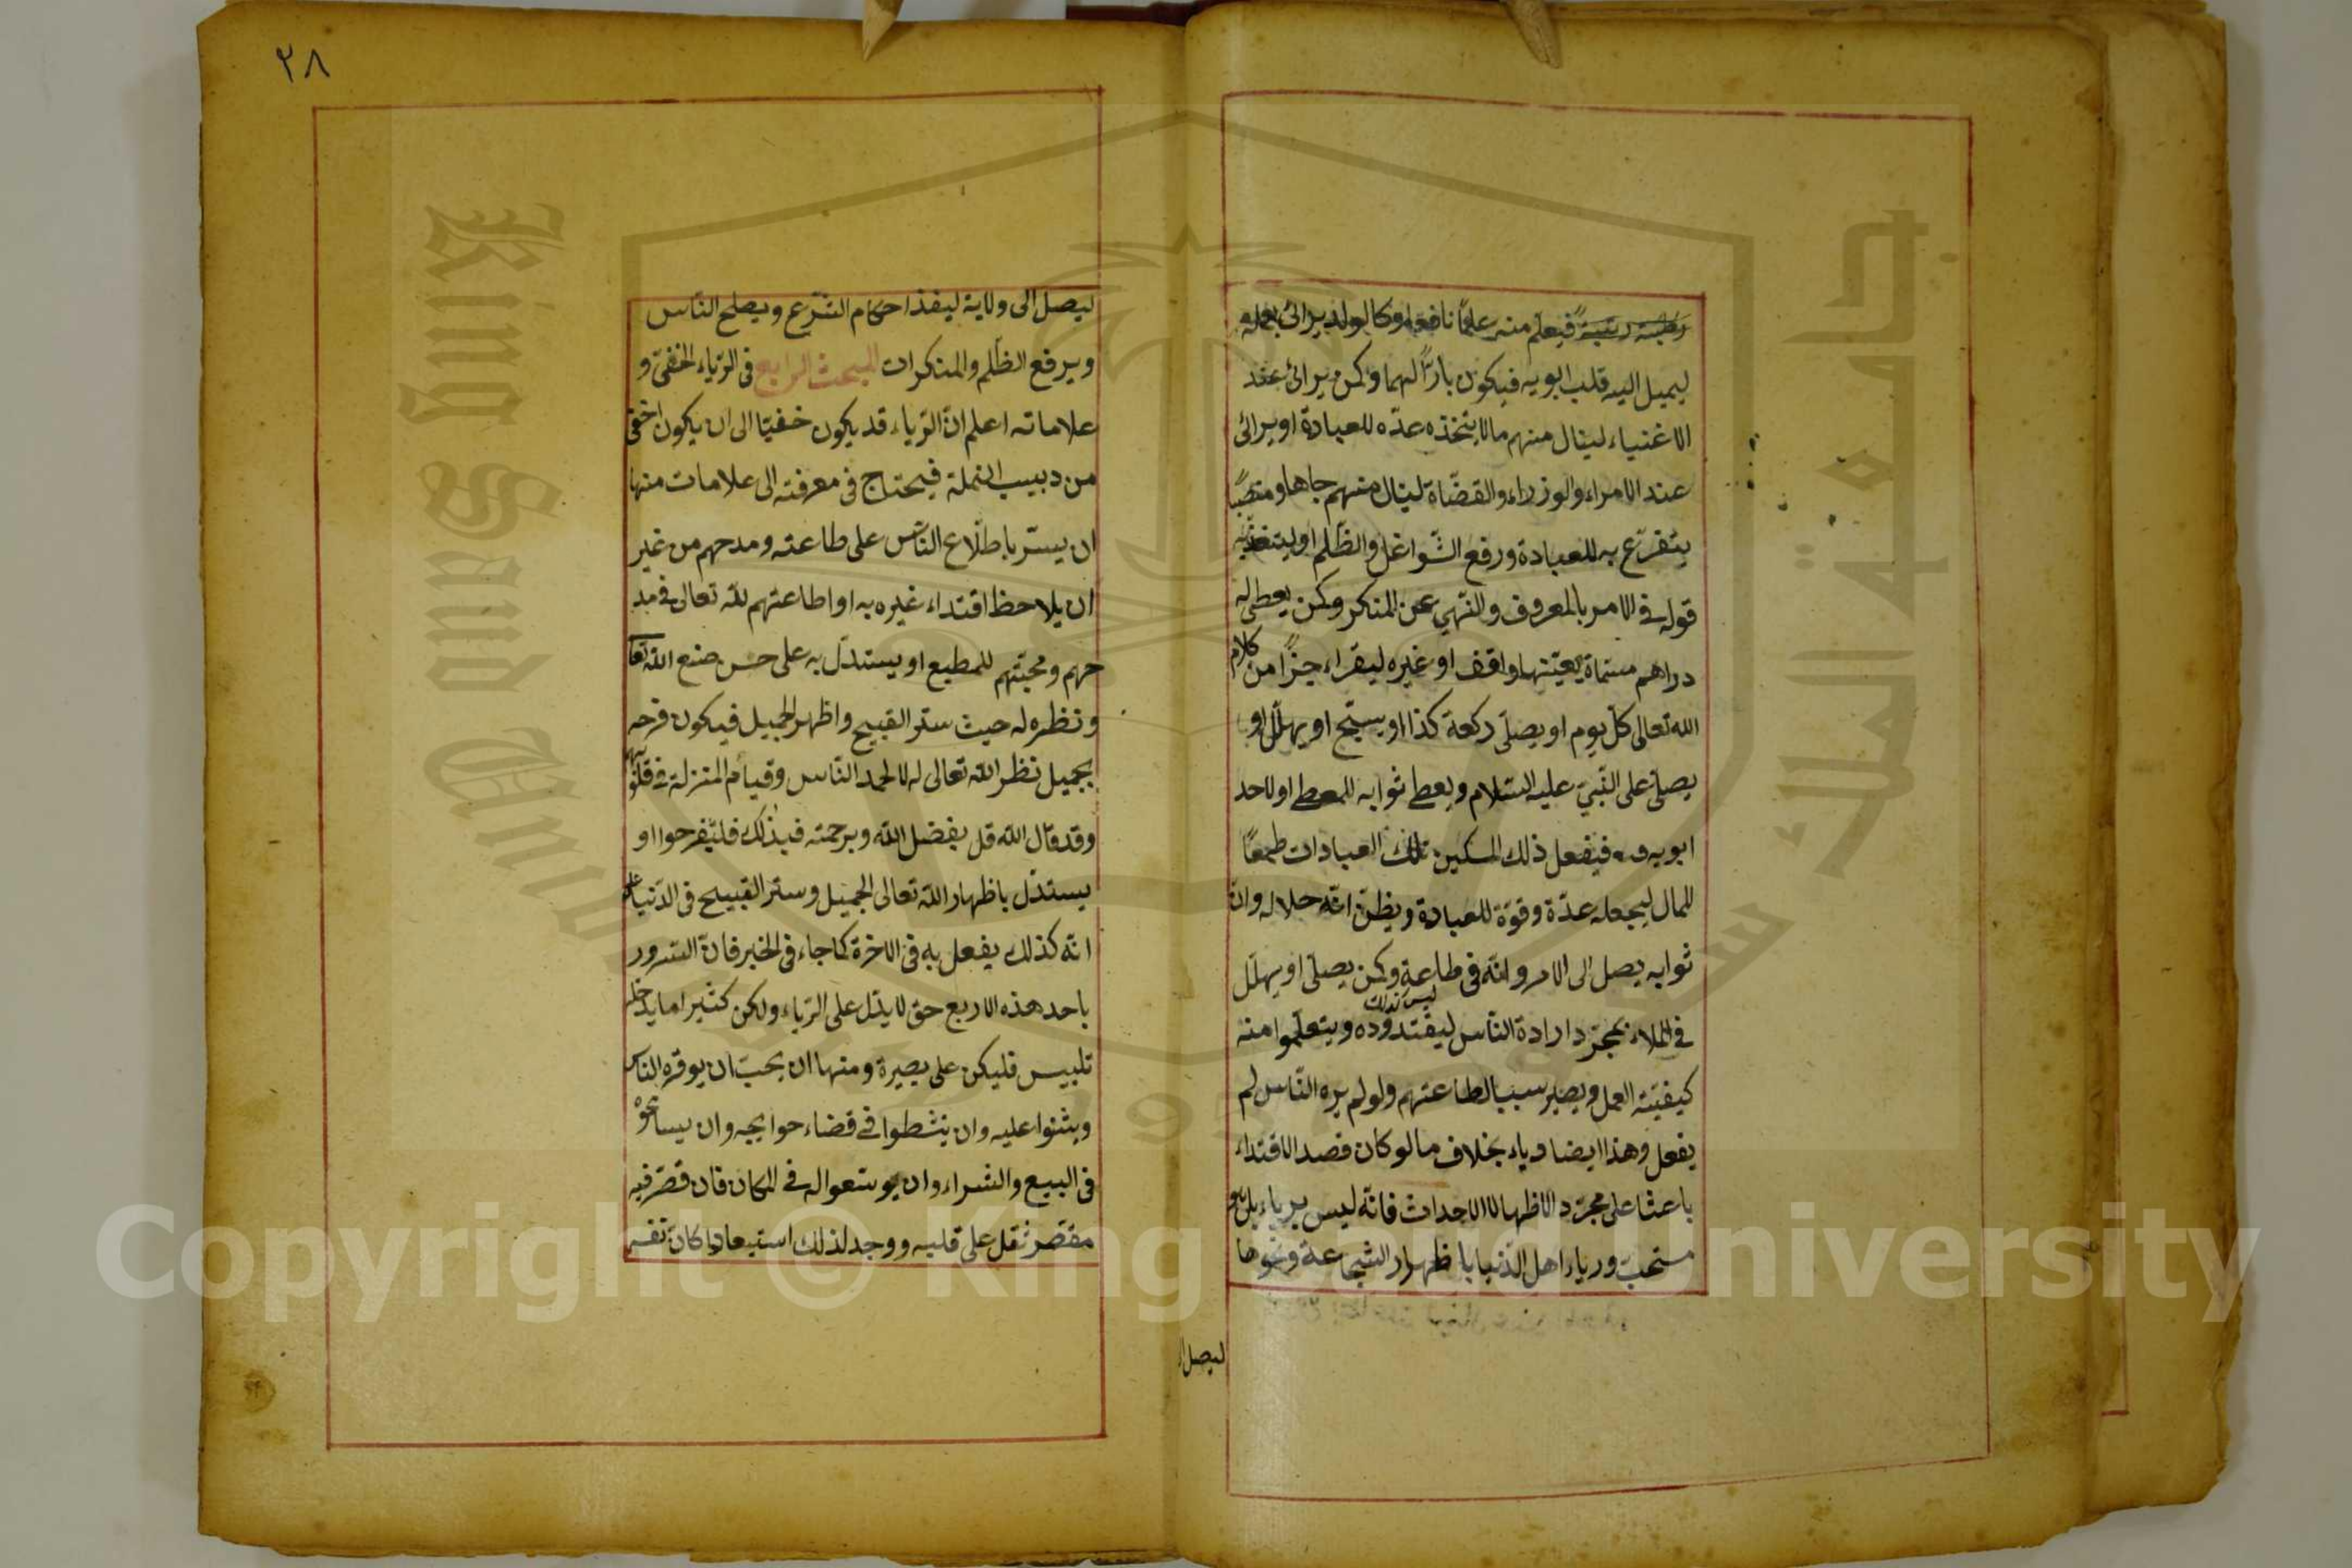 رتبة فيعلم منه علما نافعا وكالولد يرائى بعمله
ليميل اليه قلب ابويه فيكون بارًّا لهما وكمن يرائى عند
الاغنياء لينال منهم مالا يتخذه عدّه للعبادة او يرائى
عند الامراء والوزراء والقضّاة لينال منهم جاها ومنصبًا
يتفرّغ به للعبادة ورفع الشّواغل والظّلم او ليتنفّذ به
قوله فى الامر بالمعروف والنّهي عن المنكر وكمن يعطى له
دراهم مسمّاة يعيّنها واقف او غيره ليقراء جزًا من كلام
الله تعالى كلّ يوم او يصلّى ركعة كذا او يسبّح او يهلّل او
يصلّى على النّبيّ عليه السّلام ويعطى ثوابه للمعطى او لاحد
ابويه فيفعل ذلك المسكين تلك العبادات طمعًا
للمال ليجعله عدّة وقوّة للعبادة ويظنّ انّه حلاله وانّ
ثوابه يصل الى الامر وانّه فى طاعة وكمن يصلّى او يهلّل
ليس كذلك
فى الملاء بمجرّد ارادة النّاس ليقتدوه ويتعلّموا منه
كيفيّته العمل ويصير سببا لطاعتهم ولو لم يره النّاس لم
يفعل وهذا ايضا رياء بخلاف ما لو كان قصد الاقتداء
باعثا على مجرّد الاظهار لا الاحداث فانّه ليس برياء بل هو
مستحبّ ورياء اهل الدّنيا باظهار الشّجاعة ونحوها
ليصل ا
٢٨
ليصل الى ولاية ليفذ احكام الشّرع ويصلح النّاس
ويرفع الظّلم والمنكرات المبحث الرابع فى الرّياء الخفىّ و
علاماته اعلم انّ الرّياء قد يكون خفيّا الى ان يكون اخفى
من دبيب النملة فيحتاج فى معرفته الى علامات منها
ان يسرّ باطّلاع النّاس على طاعته ومدحهم من غير
ان يلاحظ اقتداء غيره به او اطاعتهم للّه تعالى فى مد
حهم ومحبّتهم للمطيع او يستدلّ به على حسن صنع الله تعا
ونظره له حيث ستر القبيح واظهر الجميل فيكون فرحه
بجميل نظر الله تعالى له لا لحمد النّاس وقيام المنزلة فى قلوبهم
وقد قال الله قل بفضل الله وبرحمته فبذلك فليفرحوا او
يستدلّ باظهار الله تعالى الجميل وستر القبيح فى الدّنيا على
انّه كذلك يفعل به فى الاخرة كما جاء فى الخبر فانّ السّرور
باحد هذه الاربع حق لا يدلّ على الرّياء ولكن كثيرا ما يدخله
تلبيس فليكن على بصيرة ومنها ان يحبّ ان يوقره الناس
ويثنوا عليه وان ينشطوا فى قضاء حوايجه وان يسامحوْ
فى البيع والشراء وان يوسّعوا له فى المكان فان قصّر فيه
مقصّر ثقل على قلبه ووجد لذلك استبعادا كانّ نفسه
Copyright © King Saud University
King Saud University
جامعة الملك سعود
1957